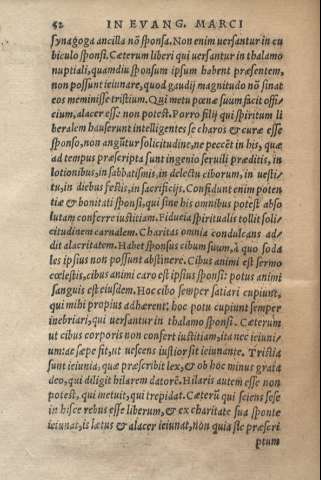 52 IN EVANG. MARCI
synagoga ancilla nō sponsa. Non enim uersantur in cu
biculo sponsi. Cæterum liberi qui uersantur in thalamo
nuptiali, quamdiu sponsum ipsum habent præsentem,
non possunt ieiunare, quod gaudij magnitudo nō sinat
eos meminisse tristium. Qui metu pœnæ suum facit offi/
cium, alacer esse non potest. Porro filij qui spiritum li
beralem hauserunt intelligentes se charos & curæ esse
sponso, non angūtur solicitudine, ne peccēt in his, quæ
ad tempus præscripta sunt ingenio seruili præditis, in
lotionibus, in sabbatismis, in delectu ciborum, in uesti/
tu, in diebus festis, in sacrificijs. Confidunt enim poten
tiæ & bonitati sponsi, qui sine his omnibus potest abso
lutam conferre iustitiam. Fiducia spiritualis tollit soli/
citudinem carnalem. Charitas omnia condulcans ad/
dit alacritatem. Habet sponsus cibum suum, à quo soda
les ipsius non possunt abstinere. Cibus animi est sermo
cœlestis, cibus animi caro est ipsius sponsi: potus animi
sanguis est eiusdem. Hoc cibo semper satiari cupiunt,
qui mihi propius adhærent: hoc potu cupiunt semper
inebriari, qui uersantur in thalamo sponsi. Cæterum
ut cibus corporis non confert iustitiam, ita nec ieiuni/
um: at sæpe fit, ut uescens iustior sit ieiunante. Tristia
sunt ieiunia, quæ præscribit lex, & ob hoc minus grata
deo, qui diligit hilarem datorē. Hilaris autem esse non
potest, qui metuit, qui trepidat. Cæterū qui sciens sese
in hisce rebus esse liberum, & ex charitate sua sponte
ieiunat, is lætus & alacer ieiunat, non quia sic præscri
ptum